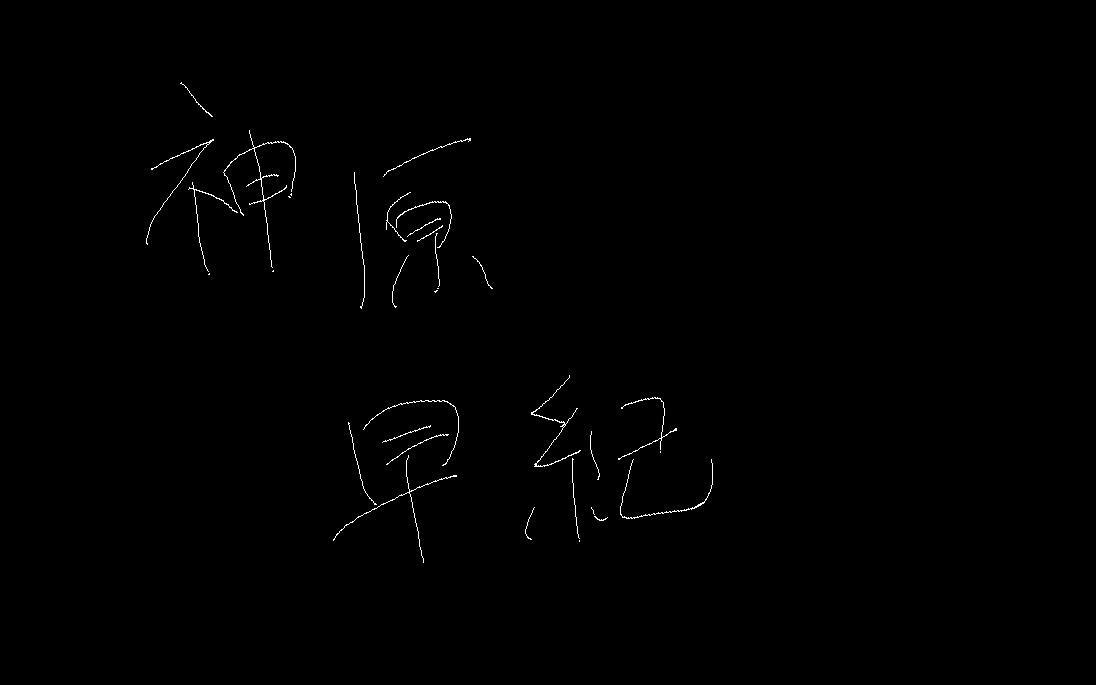 神原
早紀